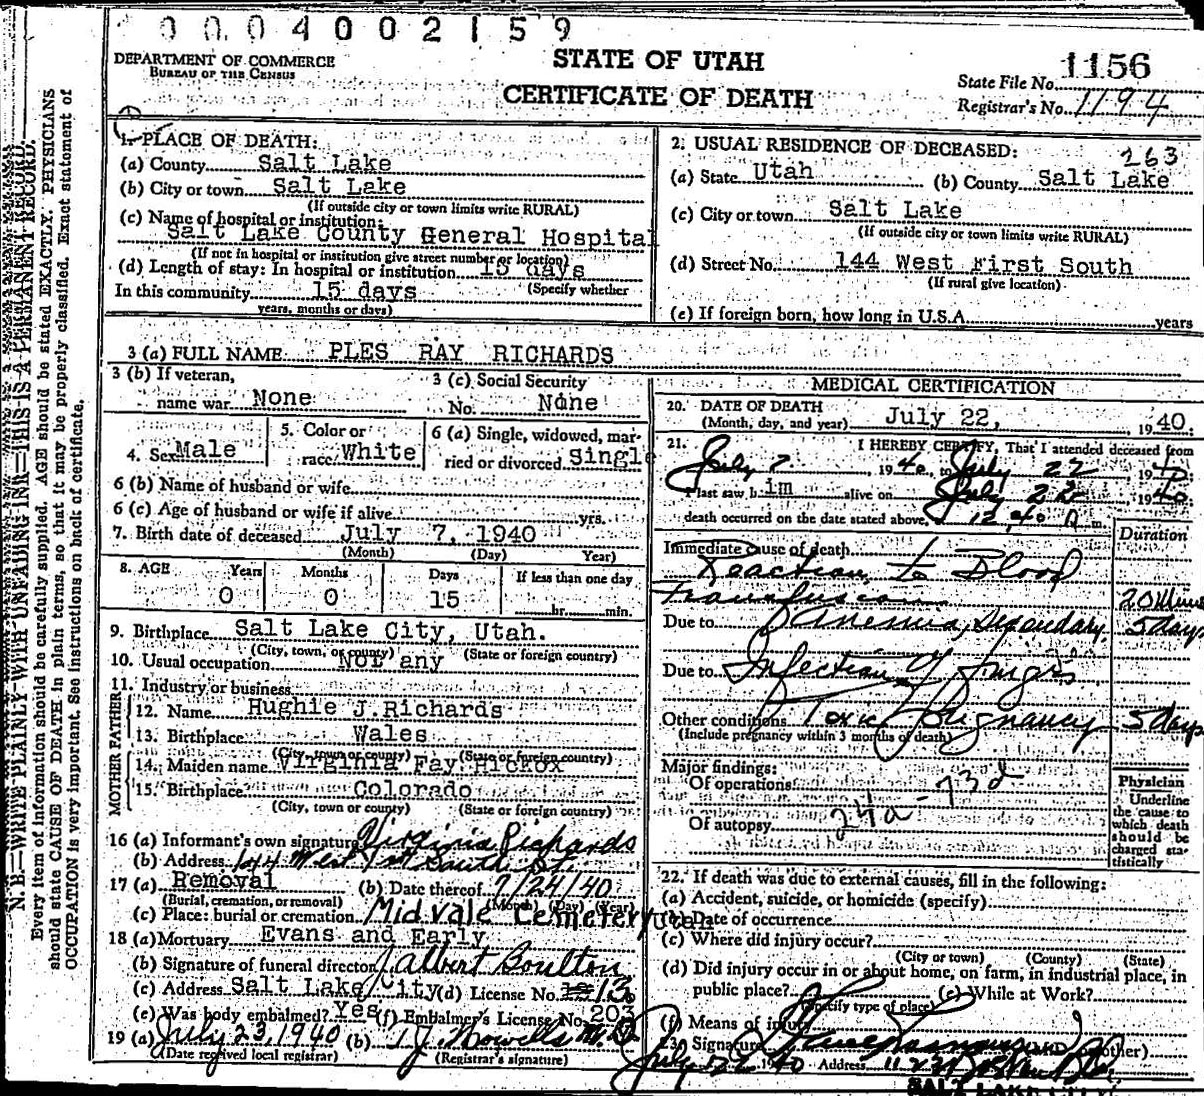 0 0 0 4 0 0 2 1 5 9
DEPARTMENT OF COMMERCE
BUREAU OF THE CENSUS
STATE OF UTAH
CERTIFICATE OF DEATH
State File No. 1156
Registrar's No. 1194
N. B.—WRITE PLAINLY WITH UNFADING INK—THIS IS A PERMANENT RECORD.
Every item of information should be carefully supplied. AGE should be stated EXACTLY. PHYSICIANS
should state CAUSE OF DEATH in plain terms, so that it may be properly classified. Exact statement of
OCCUPATION is very important. See instructions on back of certificate.
1. PLACE OF DEATH:
(a) County Salt Lake
(b) City or town Salt Lake
(If outside city or town limits write RURAL)
(c) Name of hospital or institution:
Salt Lake County General Hospital
(If not in hospital or institution give street number or location)
(d) Length of stay: In hospital or institution 15 days
(Specify whether
In this community 15 days
years, months or days)
2. USUAL RESIDENCE OF DECEASED:
263
(a) State Utah (b) County Salt Lake
(c) City or town Salt Lake
(If outside city or town limits write RURAL)
(d) Street No. 144 West First South
(If rural give location)
(e) If foreign born, how long in U.S.A. years
3 (a) FULL NAME PLES RAY RICHARDS
3 (b) If veteran,
name war None
3 (c) Social Security
No. None
4. Sex Male
5. Color or
race White
6 (a) Single, widowed, mar-
ried or divorced Single
6 (b) Name of husband or wife
6 (c) Age of husband or wife if alive yrs.
7. Birth date of deceased July 7, 1940
(Month) (Day) Year)
8. AGE Years Months Days If less than one day
0 0 15 hr. min.
9. Birthplace Salt Lake City, Utah.
(City, town, or county) (State or foreign country)
10. Usual occupation Not any
11. Industry or business
FATHER
12. Name Hughie J.Richards
13. Birthplace Wales
(City, town or county) (State or foreign country)
MOTHER
14. Maiden name Virginia Fay Hickox
15. Birthplace Colorado
(City, town or county) (State or foreign country)
16 (a) Informant's own signature Virginia Richards
(b) Address 144 West 1st South St.
17 (a) Removal (b) Date thereof 7/24/40
(Burial, cremation, or removal) (Month) (Day) (Year)
(c) Place: burial or cremation Midvale Cemetery Utah
18 (a) Mortuary Evans and Early
(b) Signature of funeral director J Albert Boulton
(c) Address Salt Lake City (d) License No. 13
(e) Was body embalmed? Yes (f) Embalmer's License No. 203
19 (a) July 23, 1940 (b) T J Howells M.D
(Date received local registrar) (Registrar's signature)
MEDICAL CERTIFICATION
20. DATE OF DEATH
(Month, day, and year) July 22, 1940.
21. I HEREBY CERTIFY, That I attended deceased from
July 7, 1940, to July 22 1940
I last saw him alive on July 22 1940
death occurred on the date stated above, 12 40 A m.
Duration
Immediate cause of death
Reaction to Blood
Transfusion 20 Mins
Due to Anemia, Secondary 5 days
Due to Infection of fingers
Other conditions Toxic Pregnancy 5 days
(Include pregnancy within 3 months of death)
Major findings:
Of operations 73d
Of autopsy 24a
Physician
Underline
the cause to
which death
should be
charged sta-
tistically
22. If death was due to external causes, fill in the following:
(a) Accident, suicide, or homicide (specify)
(b) Date of occurrence
(c) Where did injury occur?
(City or town) (County) (State)
(d) Did injury occur in or about home, on farm, in industrial place, in
public place? (e) While at Work?
(Specify type of place)
(f) Means of injury
23. Signature (MD other)
July 22 1940 Address
SALT LAKE CITY